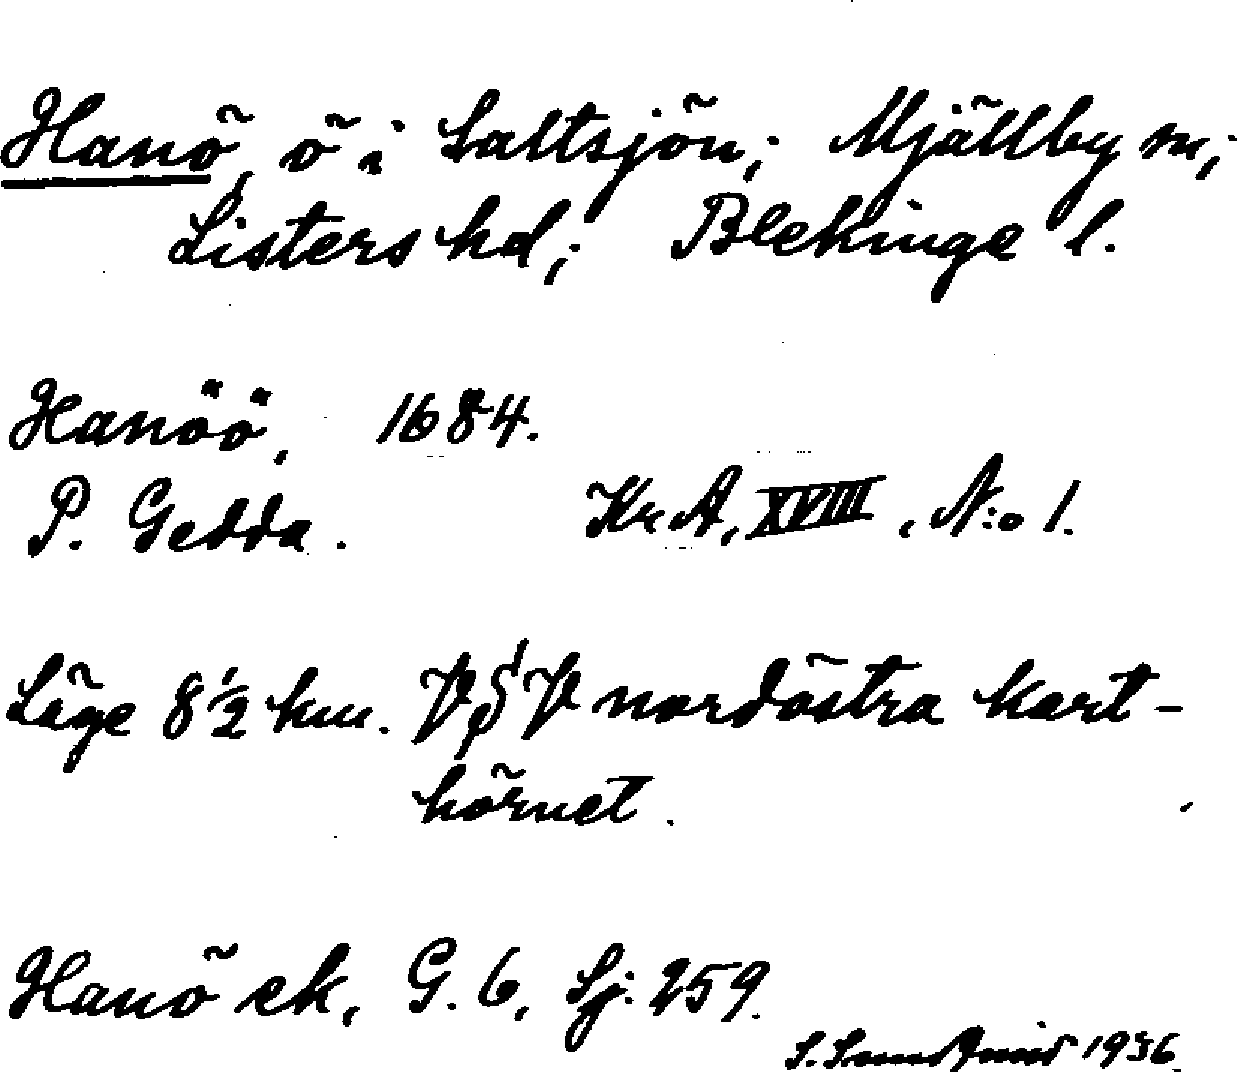 Hanö, ö i Saltsjön; Mjällby sn;
Listers hd; Blekinge l.
Hanöö, 1684.
P. Gedda. KrA, XVIII, N:o 1.
Läge 8 1/2 km. VSV nordöstra kart-
hörnet.
Hanö ek, G. 6, Sj: 259.
S. 1936.